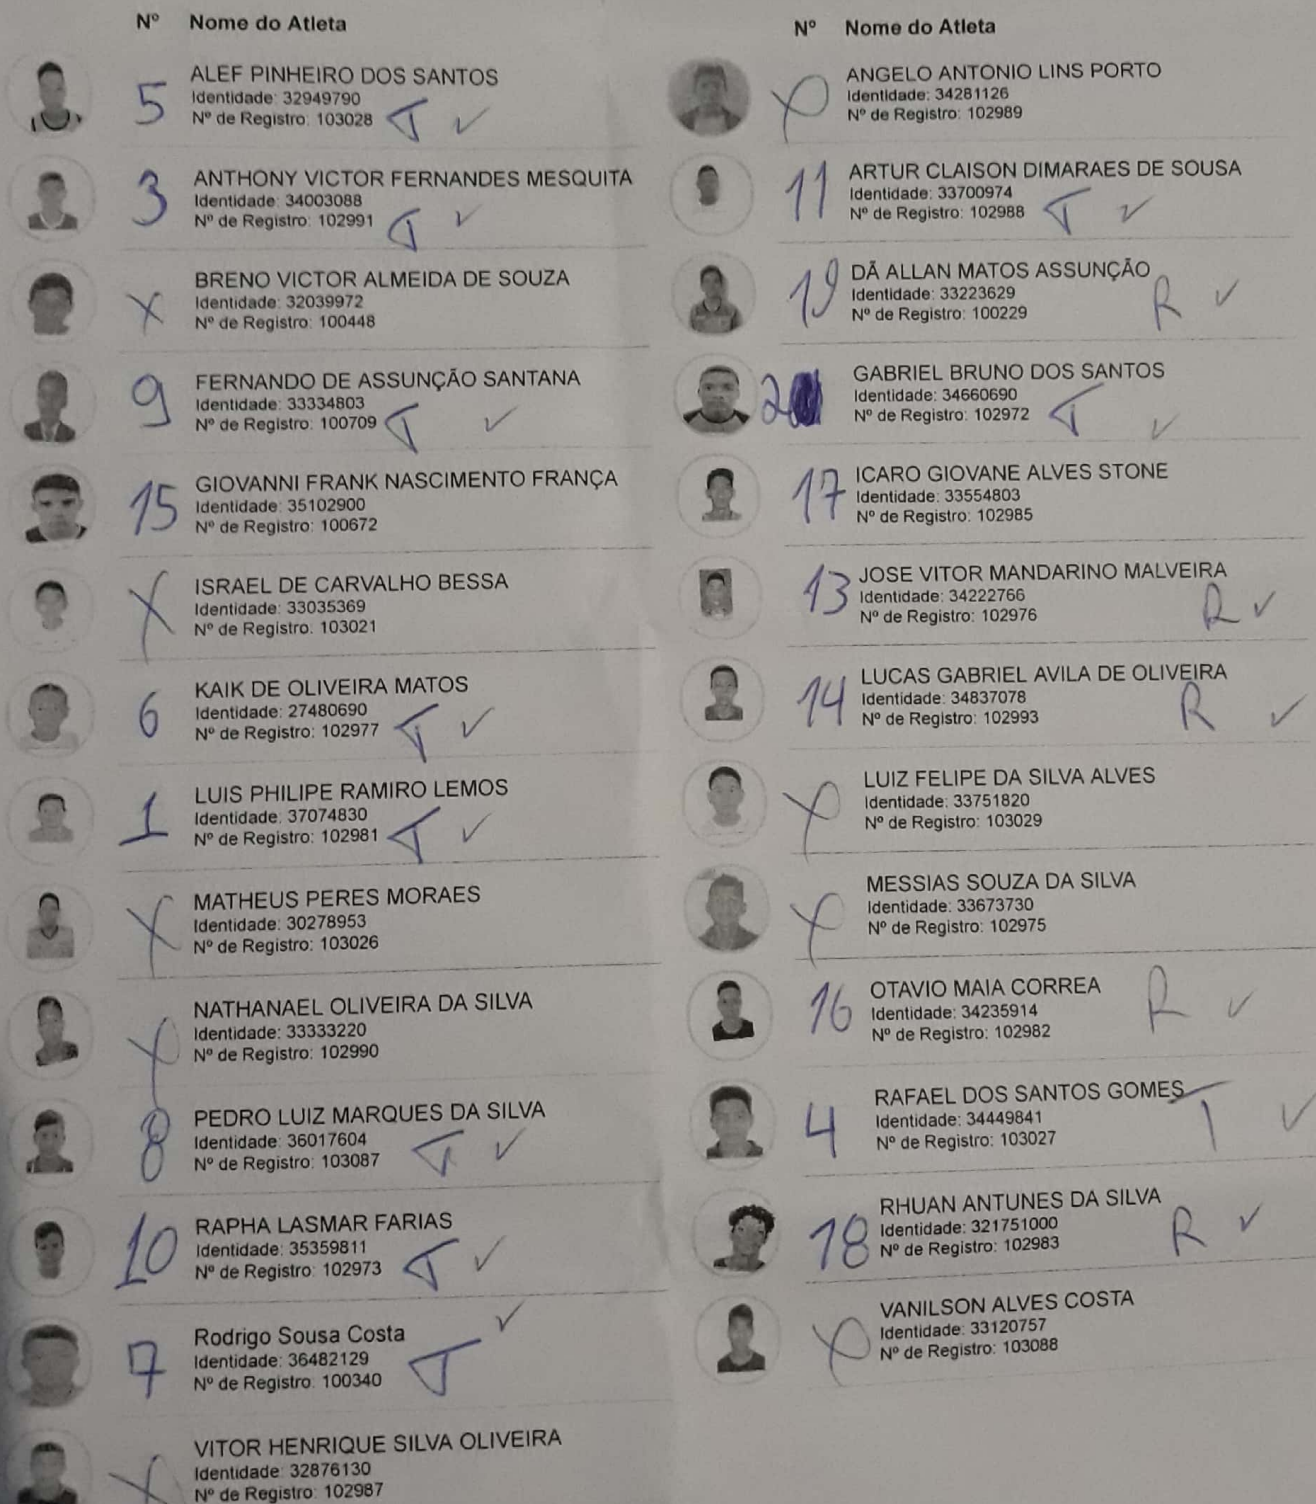 Nº Nome do Atleta
5 ALEF PINHEIRO DOS SANTOS
Identidade: 32949790
Nº de Registro: 103028 T ✓
3 ANTHONY VICTOR FERNANDES MESQUITA
Identidade: 34003088
Nº de Registro: 102991 T ✓
X BRENO VICTOR ALMEIDA DE SOUZA
Identidade: 32039972
Nº de Registro: 100448
9 FERNANDO DE ASSUNÇÃO SANTANA
Identidade: 33334803
Nº de Registro: 100709 T ✓
15 GIOVANNI FRANK NASCIMENTO FRANÇA
Identidade: 35102900
Nº de Registro: 100672
X ISRAEL DE CARVALHO BESSA
Identidade: 33035369
Nº de Registro: 103021
6 KAIK DE OLIVEIRA MATOS
Identidade: 27480690
Nº de Registro: 102977 T ✓
1 LUIS PHILIPE RAMIRO LEMOS
Identidade: 37074830
Nº de Registro: 102981 T ✓
X MATHEUS PERES MORAES
Identidade: 30278953
Nº de Registro: 103026
X NATHANAEL OLIVEIRA DA SILVA
Identidade: 33333220
Nº de Registro: 102990
8 PEDRO LUIZ MARQUES DA SILVA
Identidade: 36017604
Nº de Registro: 103087 T ✓
10 RAPHA LASMAR FARIAS
Identidade: 35359811
Nº de Registro: 102973 T ✓
7 Rodrigo Sousa Costa ✓
Identidade: 36482129
Nº de Registro: 100340 T
X VITOR HENRIQUE SILVA OLIVEIRA
Identidade: 32876130
Nº de Registro: 102987
Nº Nome do Atleta
X ANGELO ANTONIO LINS PORTO
Identidade: 34281126
Nº de Registro: 102989
11 ARTUR CLAISON DIMARAES DE SOUSA
Identidade: 33700974
Nº de Registro: 102988 T ✓
19 DÃ ALLAN MATOS ASSUNÇÃO
Identidade: 33223629
Nº de Registro: 100229 R ✓
2 GABRIEL BRUNO DOS SANTOS
Identidade: 34660690
Nº de Registro: 102972 T ✓
17 ICARO GIOVANE ALVES STONE
Identidade: 33554803
Nº de Registro: 102985
13 JOSE VITOR MANDARINO MALVEIRA
Identidade: 34222766
Nº de Registro: 102976 R ✓
14 LUCAS GABRIEL AVILA DE OLIVEIRA
Identidade: 34837078
Nº de Registro: 102993 R ✓
X LUIZ FELIPE DA SILVA ALVES
Identidade: 33751820
Nº de Registro: 103029
X MESSIAS SOUZA DA SILVA
Identidade: 33673730
Nº de Registro: 102975
16 OTAVIO MAIA CORREA R ✓
Identidade: 34235914
Nº de Registro: 102982
4 RAFAEL DOS SANTOS GOMES T ✓
Identidade: 34449841
Nº de Registro: 103027
18 RHUAN ANTUNES DA SILVA
Identidade: 321751000 R ✓
Nº de Registro: 102983
X VANILSON ALVES COSTA
Identidade: 33120757
Nº de Registro: 103088